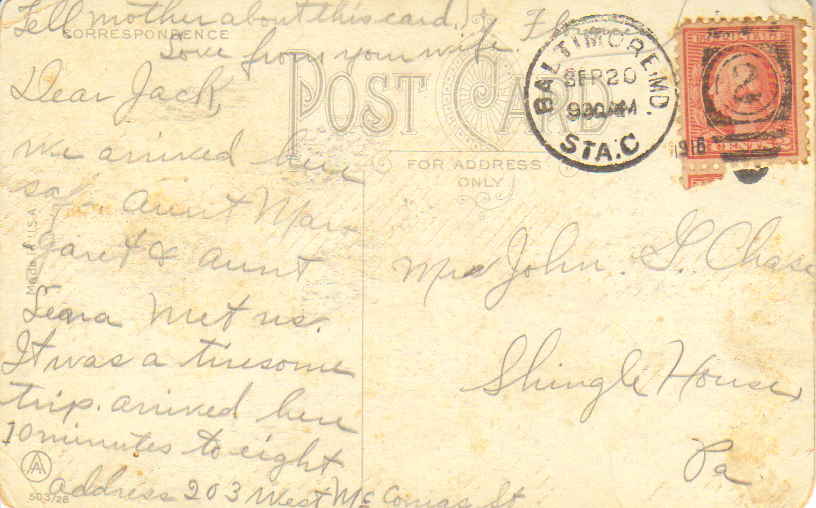 Tell mother about this card.
CORRESPONDENCE
Love from your wife
Dear Jack,
we arrived here
safe. Aunt Mar-
garet & aunt
Lena met us.
It was a tiresome
trip. arrived here
10 minutes to eight
address 203 West McComas St
MADE IN U.S.A
AA
503/28
POST CARD
FOR ADDRESS
ONLY
BALTIMORE, MD.
SEP 20
STA. C
1918
2
CENTS 2
John. L. Chase
Shingle House,
Pa.